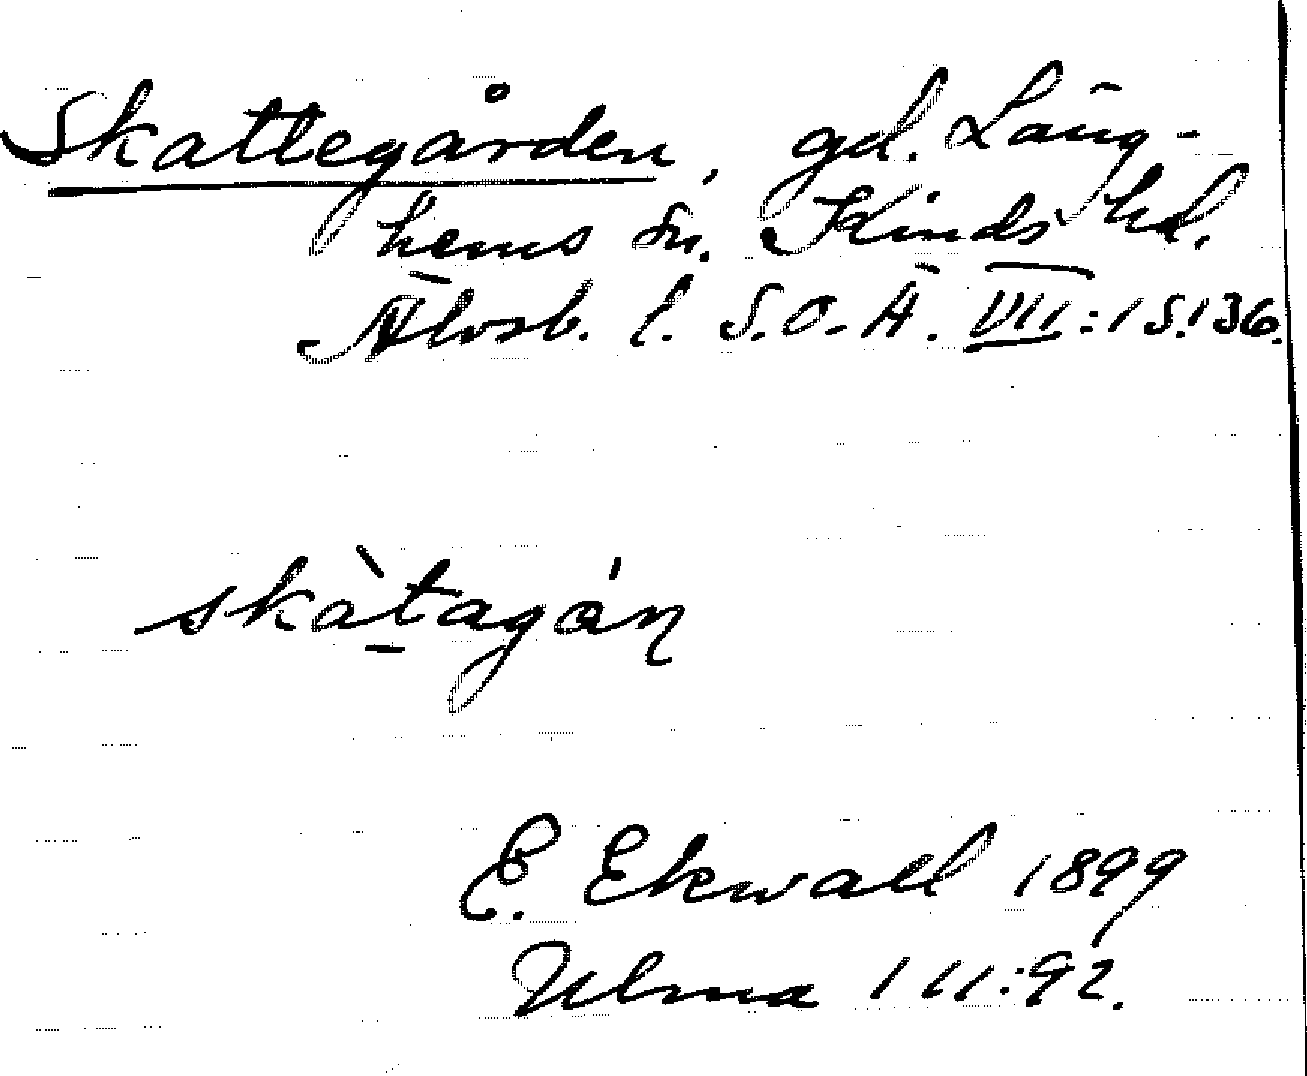 Skattegården, gd. Läng-
hems sn. Kinds hd.
Älvsb. l. S.O.Ä. VII:1 S.136.
skàtagán
E. Ekwall 1899
Ulma 111:92.